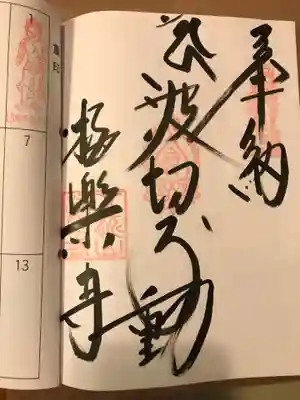 奉納
波切不動
極楽寺
1
7
13